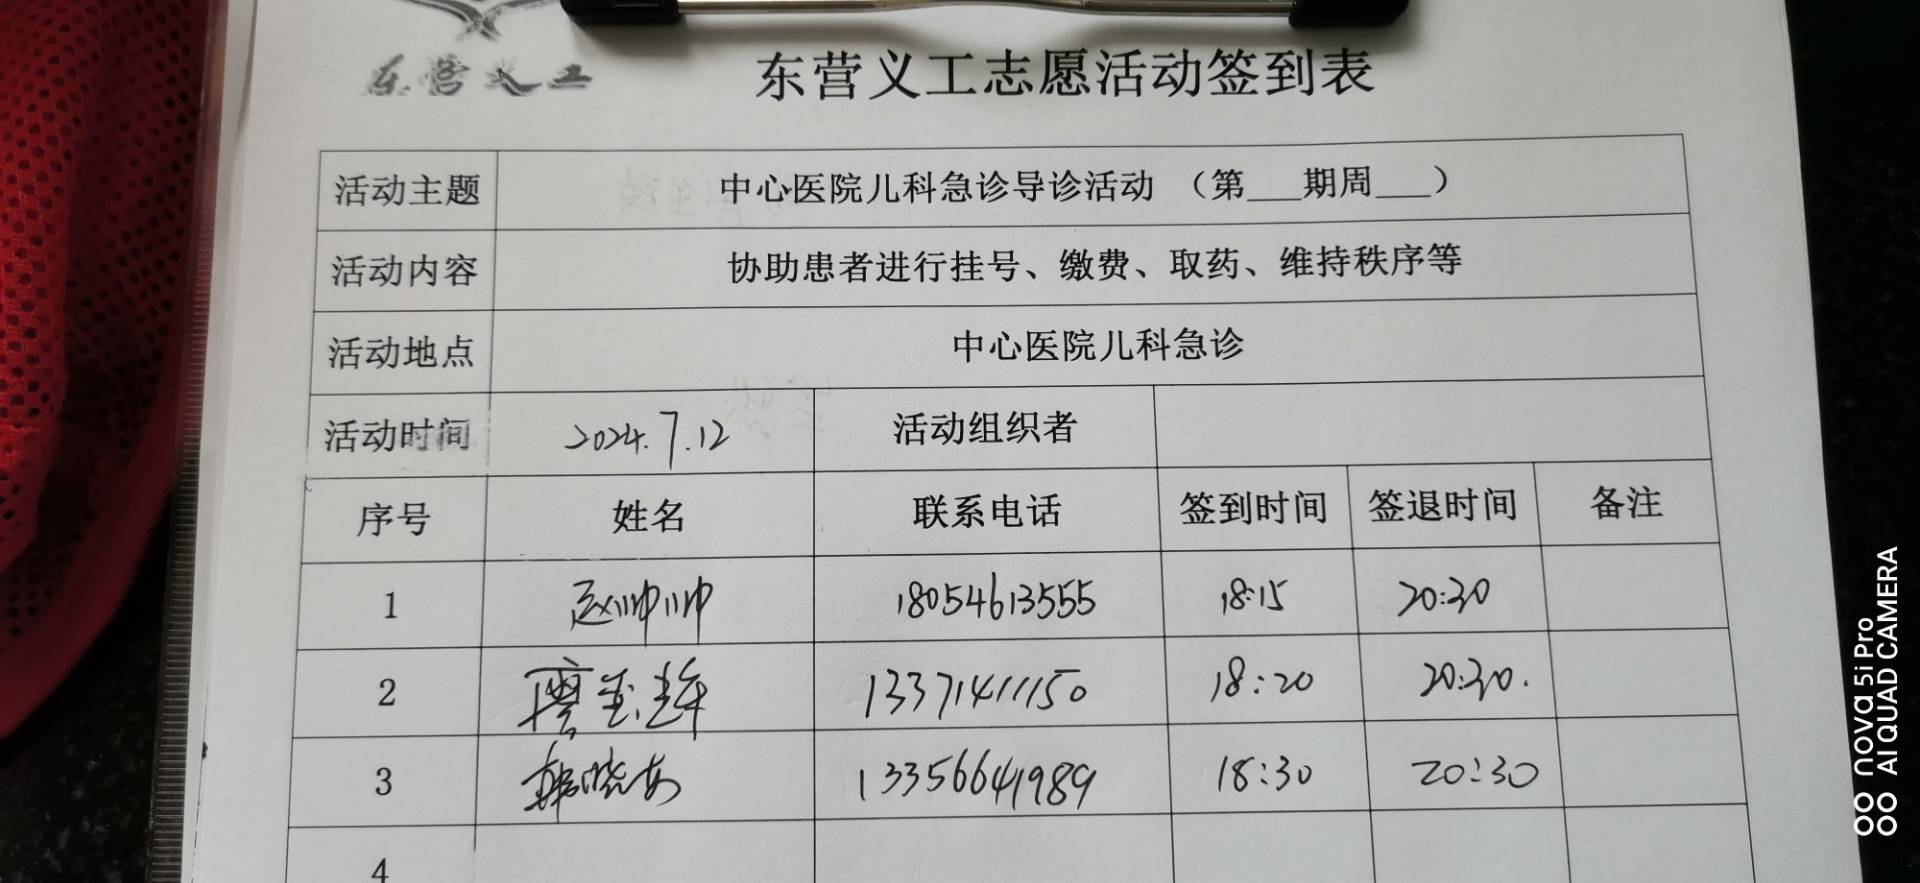 东营义工
东营义工志愿活动签到表
活动主题 中心医院儿科急诊导诊活动 （第___期周___）
活动内容 协助患者进行挂号、缴费、取药、维持秩序等
活动地点 中心医院儿科急诊
活动时间 2024.7.12 活动组织者
序号 姓名 联系电话 签到时间 签退时间 备注
1 赵帅帅 18054613555 18:15 20:30
2 13371411150 18:20 20:30.
3 韩晓 13356641989 18:30 20:30
4
nova 5i Pro
AI QUAD CAMERA